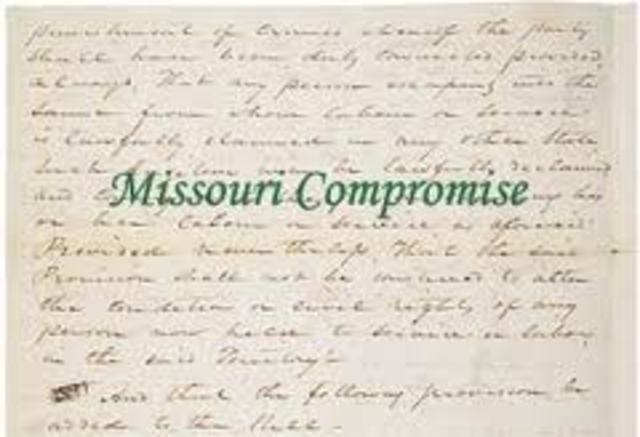 punishment of crimes whereof the party
shall have been duly convicted provided
always, That any person escaping into the
same from whom labour or service
is lawfully claimed in any other State
such fugitive may be lawfully reclaimed
and
Missouri Compromise
or her labour or service as aforesaid
Provided nevertheless, That the said
Provision shall not be construed to alter
the condition or civil rights of any
person now held to service or labor
in the said Territory
And that the following provision be
added to the Bill.